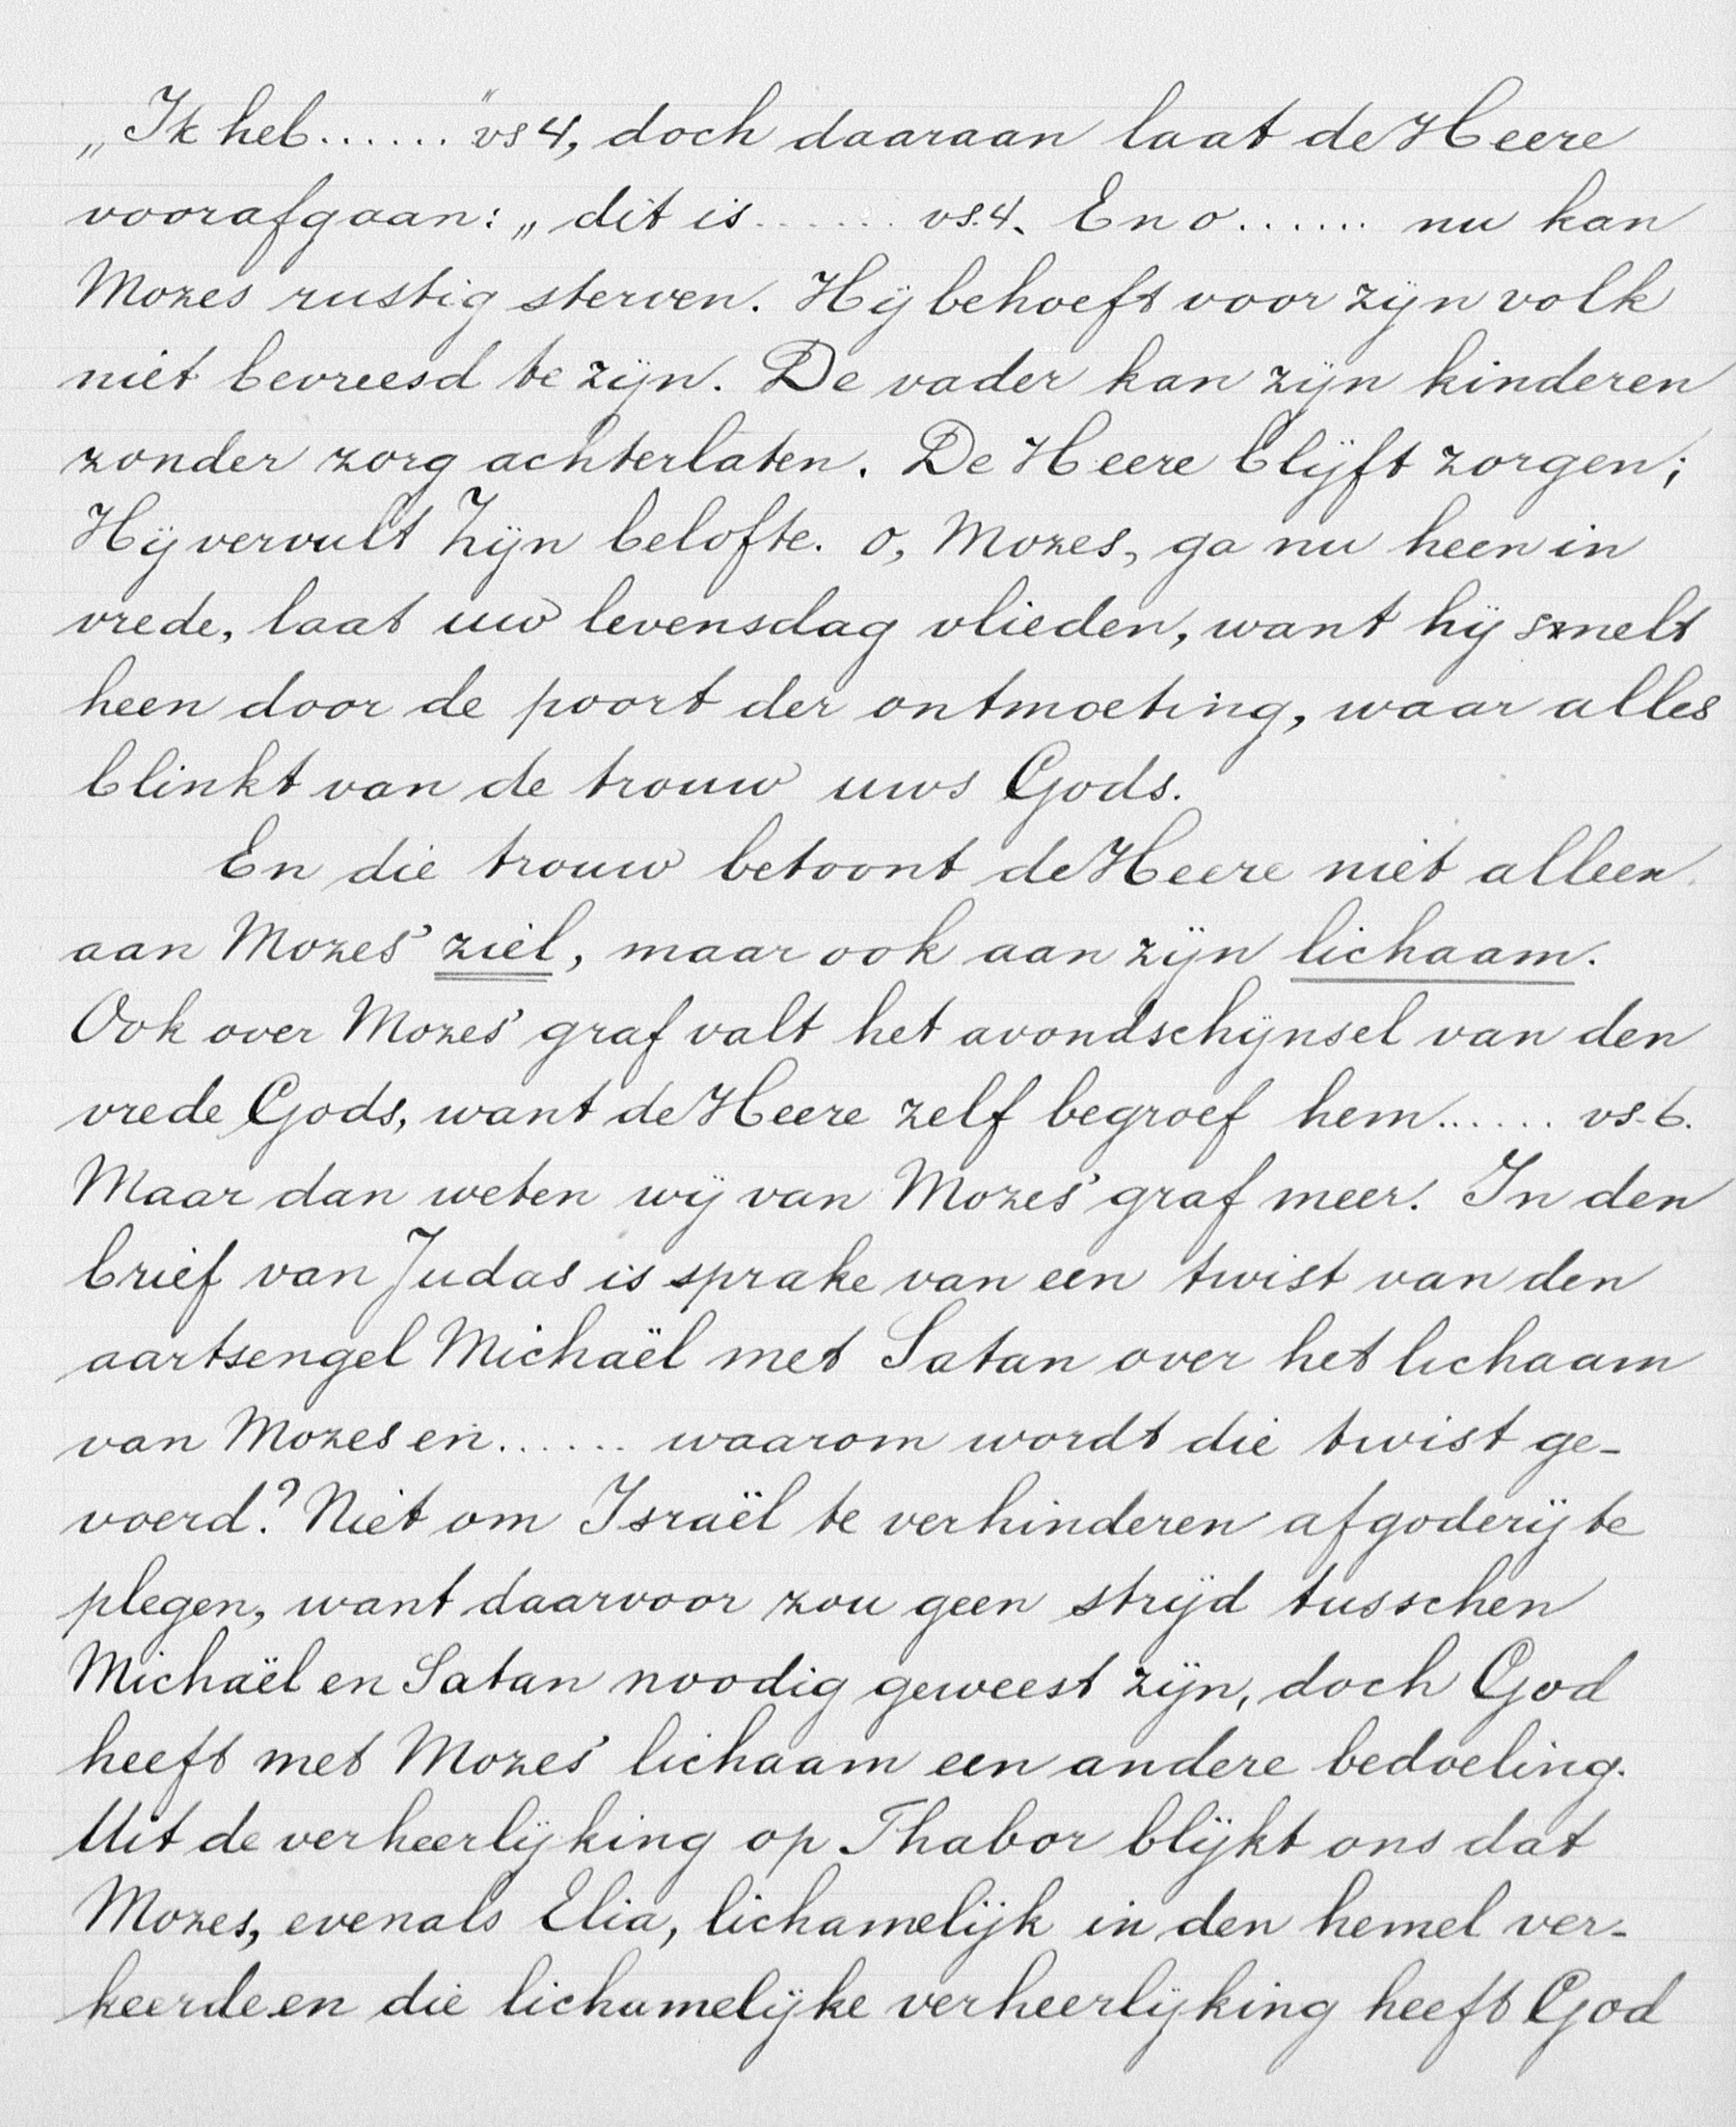 „Ik heb......” vs 4, doch daaraan laat de Heere
voorafgaan: „dit is....... vs. 4. En o...... nu kan
Mozes rustig sterven. Hij behoeft voor zijn volk
niet bevreesd te zijn. De vader kan zijn kinderen
zonder zorg achterlaten. De Heere blijft zorgen;
Hij vervult Zijn belofte. O, Mozes, ga nu heen in
vrede, laat uw levensdag vlieden, want hij smelt
heen door de poort der ontmoeting, waar alles
blinkt van de trouw uws Gods.
En die trouw betoont de Heere niet alleen
aan Mozes' ziel, maar ook aan zijn lichaam.
Ook over Mozes' graf valt het avondschijnsel van den
vrede Gods, want de Heere zelf begroef hem...... vs. 6.
Maar dan weten wij van Mozes' graf meer. In den
brief van Judas is sprake van een twist van den
aartsengel Michaël met Satan over het lichaam
van Mozes en...... waarom wordt die twist ge-
voerd? Niet om Israël te verhinderen afgoderij te
plegen, want daarvoor zou geen strijd tusschen
Michaël en Satan noodig geweest zijn, doch God
heeft met Mozes' lichaam een andere bedoeling.
Uit de verheerlijking op Thabor blijkt ons dat
Mozes, evenals Elia, lichamelijk in den hemel ver-
keerde en die lichamelijke verheerlijking heeft God